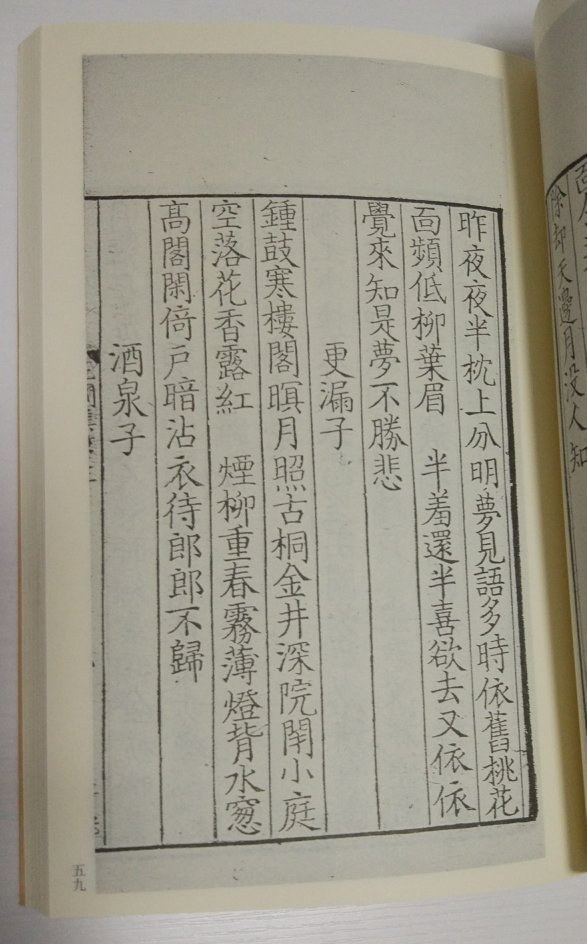 除却天邊月没人知
昨夜夜半枕上分明夢見語多時依舊桃花
靣頻低柳葉眉　半羞還半喜欲去又依依
覺來知是夢不勝悲
更漏子
鍾鼓寒樓閣暝月照古桐金井深院閇小庭
空落花香露紅　煙柳重春霧薄燈背水窻
髙閣閑倚戸暗沾衣待郎郎不歸
酒泉子
五九